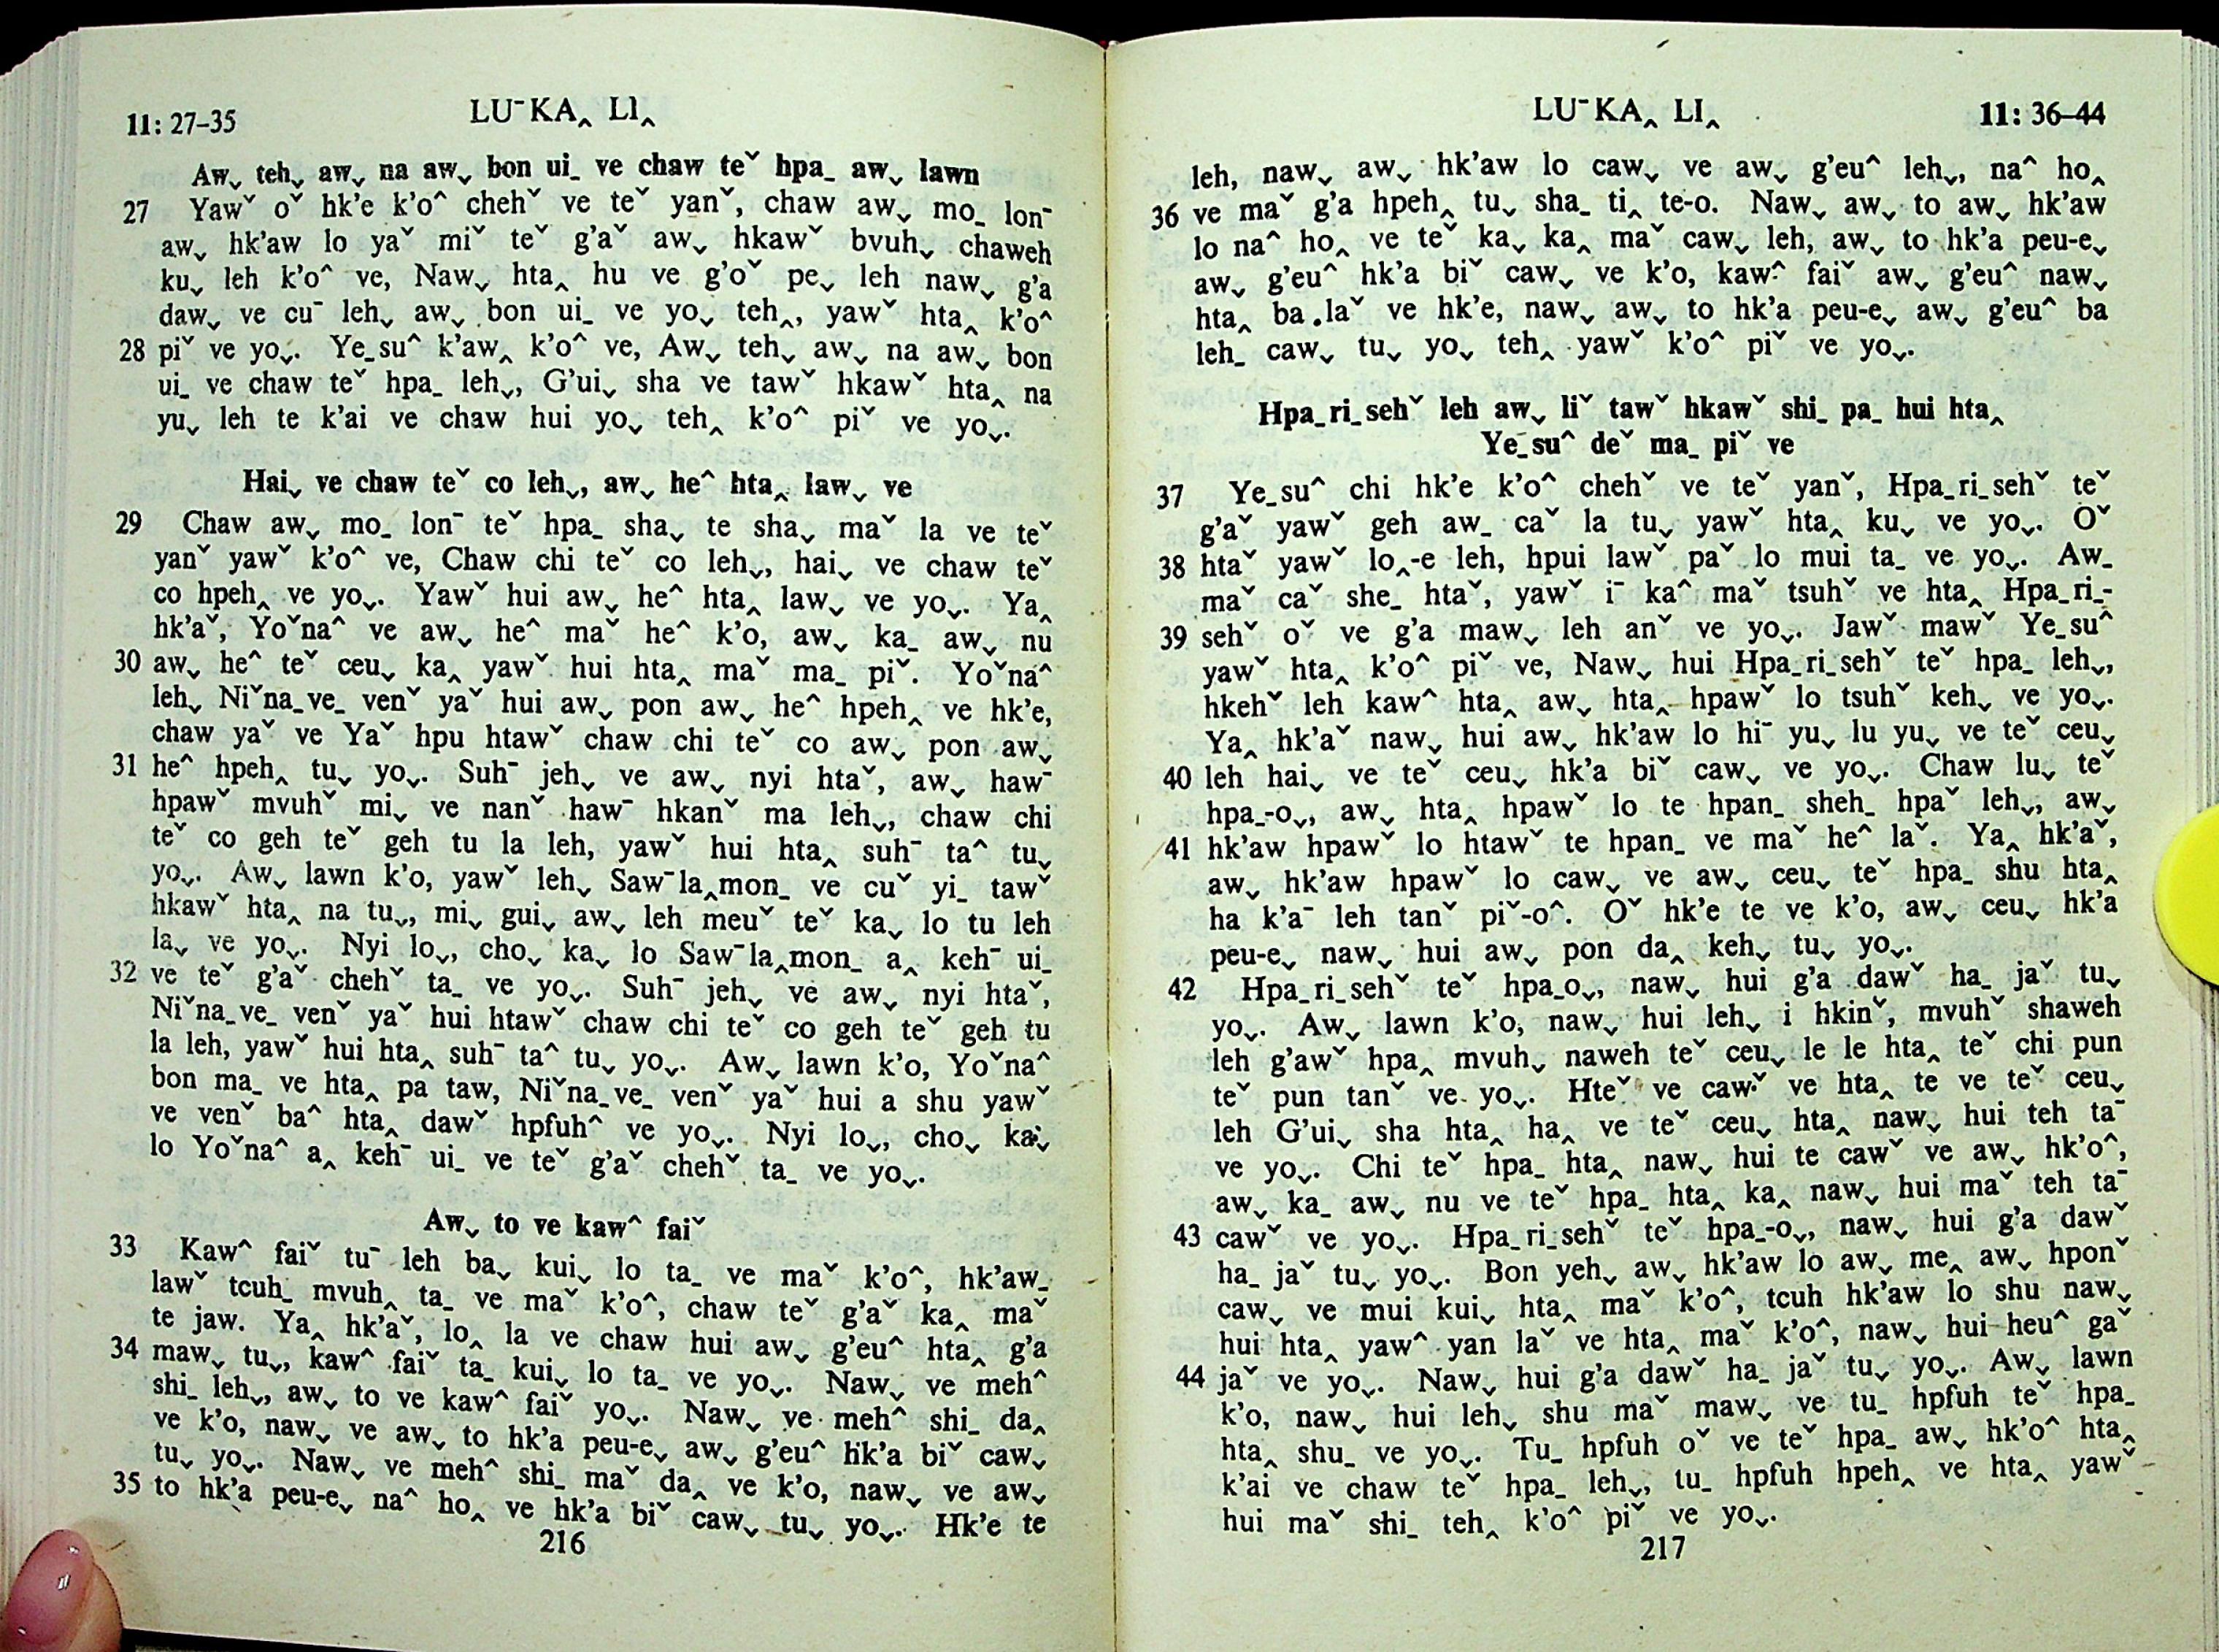 11: 27–35
LUˉKA‸ LI‸
Awˬ tehˬ awˬ na awˬ bon ui_ ve chaw teˇ hpa_ awˬ lawn
27 Yawˇ oˇ hk'e k'o^ chehˇ ve teˇ yanˇ, chaw awˬ mo_ lonˉ
awˬ hk'aw lo yaˇ miˇ teˇ g'aˇ awˬ hkawˇ bvuhˬ chaweh
kuˬ leh k'o^ ve, Nawˬ hta‸ hu ve g'oˇ peˬ leh nawˬ g'a
dawˬ ve cuˉ lehˬ awˬ bon ui_ ve yoˬ teh‸, yawˇ hta‸ k'o^
28 piˇ ve yoˬ. Ye_su^ k'aw‸ k'o^ ve, Awˬ tehˬ awˬ na awˬ bon
ui_ ve chaw teˇ hpa_ lehˬ, G'uiˬ sha ve tawˇ hkawˇ hta‸ na
yuˬ leh te k'ai ve chaw hui yoˬ teh‸ k'o^ piˇ ve yoˬ.
Haiˬ ve chaw teˇ co lehˬ, awˬ he^ hta‸ lawˬ ve
29 Chaw awˬ mo_ lonˉ teˇ hpa_ shaˬ te shaˬ maˇ la ve teˇ
yanˇ yawˇ k'o^ ve, Chaw chi teˇ co lehˬ, haiˬ ve chaw teˇ
co hpeh‸ ve yoˬ. Yawˇ hui awˬ he^ hta‸ lawˬ ve yoˬ. Ya‸
hk'aˇ, Yoˇna^ ve awˬ he^ maˇ he^ k'o, awˬ ka_ awˬ nu
30 awˬ he^ teˇ ceuˬ ka‸ yawˇ hui hta‸ maˇ ma_ piˇ. Yoˇna^
lehˬ Niˇna_ve_ venˇ yaˇ hui awˬ pon awˬ he^ hpeh‸ ve hk'e,
chaw yaˇ ve Yaˇ hpu htawˇ chaw chi teˇ co awˬ pon awˬ
31 he^ hpeh‸ tuˬ yoˬ. Suhˉ jehˬ ve awˬ nyi htaˇ, awˬ hawˉ
hpawˇ mvuhˇ miˬ ve nanˇ hawˉ hkanˇ ma lehˬ, chaw chi
teˇ co geh teˇ geh tu la leh, yawˇ hui hta‸ suhˉ ta^ tuˬ
yoˬ. Awˬ lawn k'o, yawˇ lehˬ Sawˉla‸mon_ ve cuˇ yi_ tawˇ
hkawˇ hta‸ na tuˬ, miˬ guiˬ awˬ leh meuˇ teˇ kaˬ lo tu leh
laˬ ve yoˬ. Nyi loˬ, choˬ kaˬ lo Sawˉla‸mon_ a‸ kehˉ ui_
32 ve teˇ g'aˇ chehˇ ta_ ve yoˬ. Suhˉ jehˬ ve awˬ nyi htaˇ,
Niˇna_ve_ venˇ yaˇ hui htawˇ chaw chi teˇ co geh teˇ geh tu
la leh, yawˇ hui hta‸ suhˉ ta^ tuˬ yoˬ. Awˬ lawn k'o, Yoˇna^
bon ma_ ve hta‸ pa taw, Niˇna_ve_ venˇ yaˇ hui a shu yawˇ
ve venˇ ba^ hta‸ dawˇ hpfuh^ ve yoˬ. Nyi loˬ, choˬ kaˬ
lo Yoˇna^ a‸ kehˉ ui_ ve teˇ g'aˇ chehˇ ta_ ve yoˬ.
Awˬ to ve kaw^ faiˇ
33 Kaw^ faiˇ tuˉ leh baˬ kuiˬ lo ta_ ve maˇ k'o^, hk'aw_
lawˇ tcuh_ mvuh‸ ta_ ve maˇ k'o^, chaw teˇ g'aˇ ka‸ maˇ
te jaw. Ya‸ hk'aˇ, lo‸ la ve chaw hui awˬ g'eu^ hta‸ g'a
34 mawˬ tuˬ, kaw^ faiˇ ta_ kuiˬ lo ta_ ve yoˬ. Nawˬ ve meh^
shi_ lehˬ, awˬ to ve kaw^ faiˇ yoˬ. Nawˬ ve meh^ shi_ da‸
ve k'o, nawˬ ve awˬ to hk'a peu-eˬ awˬ g'eu^ hk'a biˇ cawˬ
tuˬ yoˬ. Nawˬ ve meh^ shi_ maˇ da‸ ve k'o, nawˬ ve awˬ
35 to hk'a peu-eˬ na^ ho‸ ve hk'a biˇ cawˬ tuˬ yoˬ. Hk'e te
216
LUˉKA‸ LI‸
11: 36–44
leh, nawˬ awˬ hk'aw lo cawˬ ve awˬ g'eu^ lehˬ, na^ ho‸
36 ve maˇ g'a hpeh‸ tuˬ sha_ ti‸ te-o. Nawˬ awˬ to awˬ hk'aw
lo na^ ho‸ ve teˇ kaˬ ka‸ maˇ cawˬ leh, awˬ to hk'a peu-eˬ
awˬ g'eu^ hk'a biˇ cawˬ ve k'o, kaw^ faiˇ awˬ g'eu^ nawˬ
hta‸ ba laˇ ve hk'e, nawˬ awˬ to hk'a peu-eˬ awˬ g'eu^ ba
leh_ cawˬ tuˬ yoˬ teh‸ yawˇ k'o^ piˇ ve yoˬ.
Hpa_ri_sehˇ leh awˬ liˇ tawˇ hkawˇ shi_ pa_ hui hta‸
Ye_su^ deˇ ma_ piˇ ve
37 Ye_su^ chi hk'e k'o^ chehˇ ve teˇ yanˇ, Hpa_ri_sehˇ teˇ
g'aˇ yawˇ geh aw_ caˇ la tuˬ yawˇ hta‸ kuˬ ve yoˬ. Oˇ
38 htaˇ yawˇ lo‸-e leh, hpui lawˇ paˇ lo mui ta_ ve yoˬ. Aw_
maˇ caˇ she_ htaˇ, yawˇ iˉ ka^ maˇ tsuhˇ ve hta‸ Hpa_ri_-
39 sehˇ oˇ ve g'a mawˬ leh anˇ ve yoˬ. Jawˇ mawˇ Ye_su^
yawˇ hta‸ k'o^ piˇ ve, Nawˬ hui Hpa_ri_sehˇ teˇ hpa_ lehˬ,
hkehˇ leh kaw^ hta‸ awˬ hta‸ hpawˇ lo tsuhˇ kehˬ ve yoˬ.
Ya‸ hk'aˇ nawˬ hui awˬ hk'aw lo hiˉ yuˬ lu yuˬ ve teˇ ceuˬ
40 leh haiˬ ve teˇ ceuˬ hk'a biˇ cawˬ ve yoˬ. Chaw luˬ teˇ
hpa_-oˬ, awˬ hta‸ hpawˇ lo te hpan_ sheh_ hpaˇ lehˬ, awˬ
41 hk'aw hpawˇ lo htawˇ te hpan_ ve maˇ he^ laˇ. Ya‸ hk'aˇ,
awˬ hk'aw hpawˇ lo cawˬ ve awˬ ceuˬ teˇ hpa_ shu hta‸
ha k'aˉ leh tanˇ piˇ-o^. Oˇ hk'e te ve k'o, awˬ ceuˬ hk'a
peu-eˬ nawˬ hui awˬ pon da‸ kehˬ tuˬ yoˬ.
42 Hpa_ri_sehˇ teˇ hpa_oˬ, nawˬ hui g'a dawˇ ha_ jaˇ tuˬ
yoˬ. Awˬ lawn k'o, nawˬ hui lehˬ i hkinˇ, mvuhˇ shaweh
leh g'awˇ hpa‸ mvuhˬ naweh teˇ ceuˬ le le hta‸ teˇ chi pun
teˇ pun tanˇ ve yoˬ. Hteˇ ve cawˇ ve hta‸ te ve teˇ ceuˬ
leh G'uiˬ sha hta‸ ha‸ ve teˇ ceuˬ hta‸ nawˬ hui teh taˉ
ve yoˬ. Chi teˇ hpa_ hta‸ nawˬ hui te cawˇ ve awˬ hk'o^,
awˬ ka_ awˬ nu ve teˇ hpa_ hta‸ ka‸ nawˬ hui maˇ teh taˉ
43 cawˇ ve yoˬ. Hpa_ri_sehˇ teˇ hpa_-oˬ, nawˬ hui g'a dawˇ
ha_ jaˇ tuˬ yoˬ. Bon yehˬ awˬ hk'aw lo awˬ me‸ awˬ hponˇ
cawˬ ve mui kuiˬ hta‸ maˇ k'o^, tcuh hk'aw lo shu nawˬ
hui hta‸ yaw^ yan laˇ ve hta‸ maˇ k'o^, nawˬ hui heu^ gaˇ
44 jaˇ ve yoˬ. Nawˬ hui g'a dawˇ ha_ jaˇ tuˬ yoˬ. Awˬ lawn
k'o, nawˬ hui lehˬ shu maˇ mawˬ ve tu_ hpfuh teˇ hpa_
hta‸ shu_ ve yoˬ. Tu_ hpfuh oˇ ve teˇ hpa_ awˬ hk'o^ hta‸
k'ai ve chaw teˇ hpa_ lehˬ, tu_ hpfuh hpeh‸ ve hta‸ yawˇ
hui maˇ shi_ teh‸ k'o^ piˇ ve yoˬ.
217